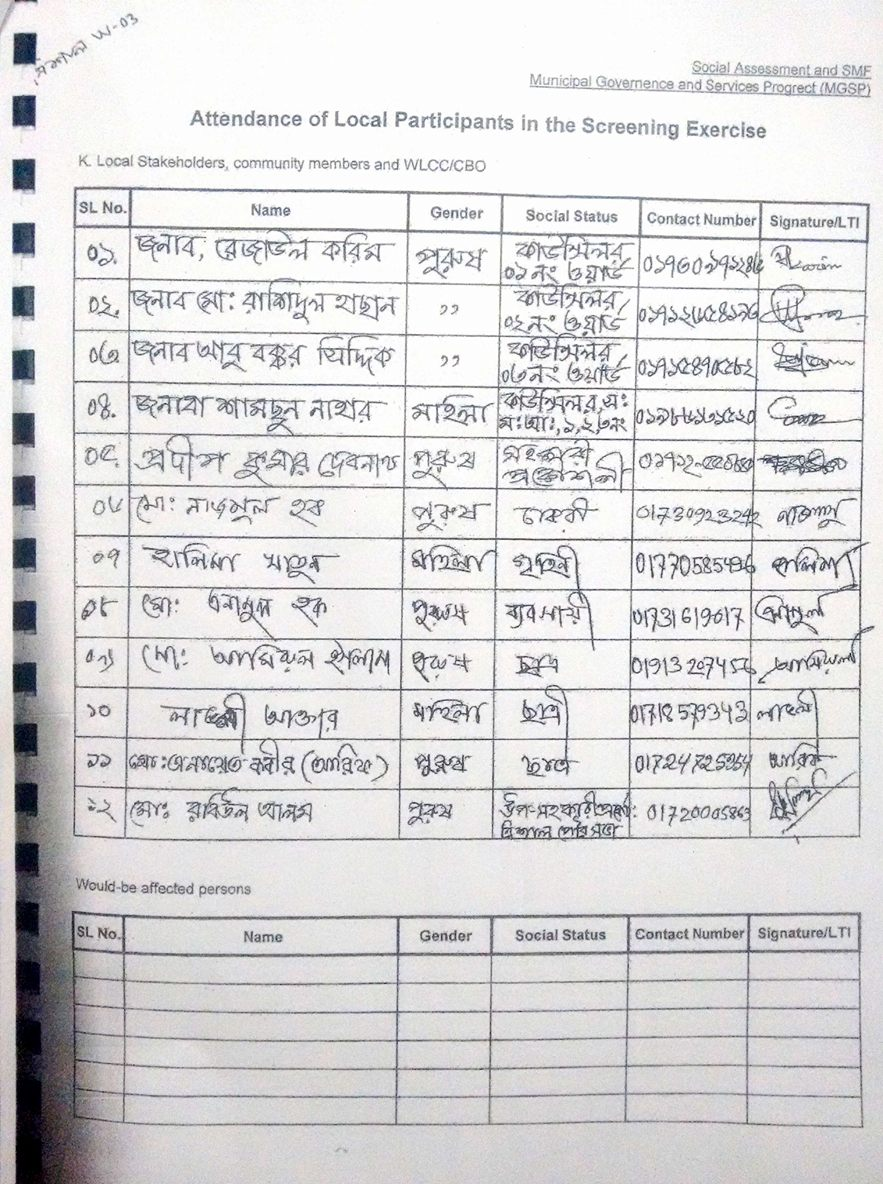 W-03
Social Assessment and SMF
Municipal Governence and Services Progrect (MGSP)
Attendance of Local Participants in the Screening Exercise
K. Local Stakeholders, community members and WLCC/CBO
SL No. Name Gender Social Status Contact Number Signature/LTI
০১. জনাব, রেজাউল করিম পুরুষ কাউন্সিলর ০১ নং ওয়ার্ড
০২. জনাব মো: রাশিদুল হাছান ,, কাউন্সিলর ০২ নং ওয়ার্ড
০৩ জনাব আবু বক্কর সিদ্দিক ,, কাউন্সিলর ০৩ নং ওয়ার্ড
০৪. জনাবা শামছুন নাহার মহিলা কাউন্সিলর, ১,২,৩নং
০৫. প্রদীপ কুমার দেবনাথ পুরুষ সহকারী প্রকৌশলী
০৬ মো: নাজমুল হক পুরুষ চাকরী 01730923242 নাজমুল
০৭ হালিমা খাতুন মহিলা গৃহিনী 01770585496 হালিমা
০৮ মো: এনামুল হক পুরুষ ব্যবসায়ী 01731619017
০৯ মো: আমিরুল ইসলাম পুরুষ ছাত্র 01913207456 আমিরুল
১০ লাভলী আক্তার মহিলা ছাত্রী 01718579343 লাভলী
১১ মো: এনায়েত কবীর (আরিফ) পুরুষ ছাত্র 01724725264 আরিফ
১২ মো: রবিউল আলম পুরুষ উপ-সহকারী ত্রিশাল পৌরসভা 01720005863
Would-be affected persons
SL No. Name Gender Social Status Contact Number Signature/LTI